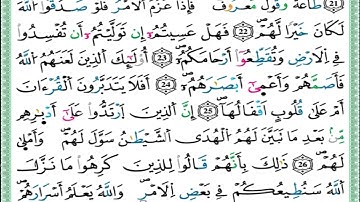 21 طَاعَةٌ وَقَوْلٌ مَّعْرُوفٌ فَإِذَا عَزَمَ ٱلَامْرُ فَلَوْ صَدَقُواْ ٱللَّهَ
لَكَانَ خَيْرًا لَّهُمْ 22 فَهَلْ عَسِيتُمُۥٓ إِن تَوَلَّيْتُمُۥٓ أَن تُفْسِدُواْ
فِى ٱلَارْضِ وَتُقَطِّعُوٓاْ أَرْحَامَكُمُۥٓ 23 أُوْلَٰٓئِكَ ٱلَّذِينَ لَعَنَهُمُ ٱللَّهُ
فَأَصَمَّهُمْ وَأَعْمَىٰٓ أَبْصَٰرَهُمُۥٓ 24 أَفَلَا يَتَدَبَّرُونَ ٱلْقُرْءَانَ
أَمْ عَلَىٰ قُلُوبٍ اَقْفَالُهَآ 25 إِنَّ ٱلَّذِينَ ٱرْتَدُّواْ عَلَىٰٓ أَدْبَٰرِهِم
مِّنۢ بَعْدِ مَا تَبَيَّنَ لَهُمُ ٱلْهُدَى ٱلشَّيْطَٰنُ سَوَّلَ لَهُمْ وَأَمْلَىٰ
لَهُمْ 26 ذَٰلِكَ بِأَنَّهُمْ قَالُواْ لِلَّذِينَ كَرِهُواْ مَا نَزَّلَ
ٱللَّهُ سَنُطِيعُكُمْ فِى بَعْضِ ٱلَامْرِ وَٱللَّهُ يَعْلَمُ أَسْرَارَهُمْ